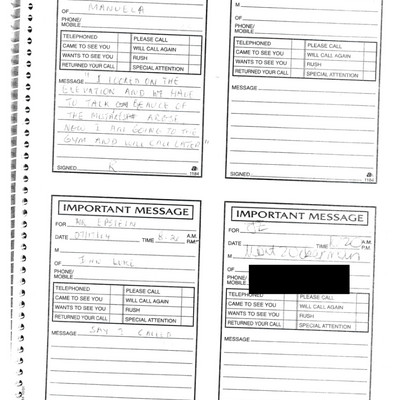 M
OF MANUELA
PHONE/
MOBILE
TELEPHONED PLEASE CALL
CAME TO SEE YOU WILL CALL AGAIN
WANTS TO SEE YOU RUSH
RETURNED YOUR CALL SPECIAL ATTENTION
MESSAGE "I ON THE
AND
TO TALK OF
THE
NOW I AM GOING TO THE
GYM AND WILL CALL LATER"
SIGNED R
1184
M
OF
PHONE/
MOBILE
TELEPHONED PLEASE CALL
CAME TO SEE YOU WILL CALL AGAIN
WANTS TO SEE YOU RUSH
RETURNED YOUR CALL SPECIAL ATTENTION
MESSAGE
SIGNED
1184
IMPORTANT MESSAGE
FOR MR EPSTEIN
DATE TIME A.M.
P.M.
M
OF
PHONE/
MOBILE
TELEPHONED PLEASE CALL
CAME TO SEE YOU WILL CALL AGAIN
WANTS TO SEE YOU RUSH
RETURNED YOUR CALL SPECIAL ATTENTION
MESSAGE SAY I CALLED
IMPORTANT MESSAGE
FOR JE
DATE TIME A.M.
P.M.
M
OF
PHONE/
MOBILE
TELEPHONED PLEASE CALL
CAME TO SEE YOU WILL CALL AGAIN
WANTS TO SEE YOU RUSH
RETURNED YOUR CALL SPECIAL ATTENTION
MESSAGE